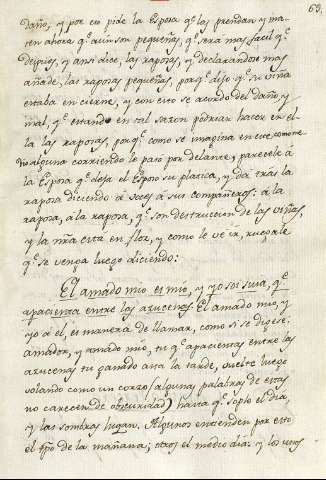 63.
daño, y por eso pide la Esposa q.e las prendan y ma-
ten ahora q.e aun son pequeñas, q.e sera mas facil q.e
despues, y ansi dice, las raposas, y declarandose mas
añade, las raposas pequeñas, porq.e dijo q.e su viña
estaba en cierne, y con esto se acordo del daño, y
mal, q.e estando en tal sazon podrian hacer en el-
la las raposas, porq.e como se imagina en este
alguna corriendo le paso por delante, parecele á
la Esposa q.e deja el Esposo su platica, y da tras la
raposa diciendo á voces á sus compañeros: á la
raposa, á la raposa, q.e son destruccion de las viñas,
y la nrã esta en flor, y como le ve ir, ruegale
q.e se venga luego diciendo:
El amado mio es mio, y yo soi suia, q.e
apacienta entre los azucenas. El amado mio, y
yo á el, es manera de llamar, como si se digese:
amador, y amado mio, tu q.e apacientas entre las
azucenas tu ganado asta la tarde, vuelve luego
volando como un corzo (algunas palabras de estas
no carecen de obscuridad) hasta q.e sople el dia,
y las sombras huyan. Algunos entienden por esto
el tpõ de la mañana; otros el medio dia: y los unos